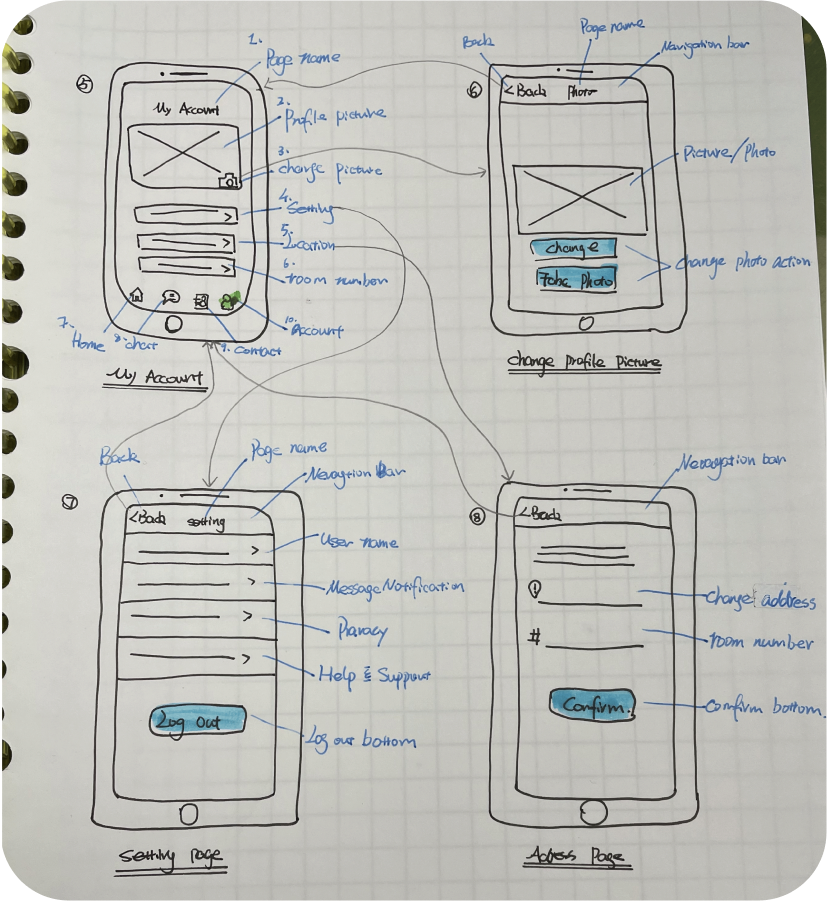 5
1.
Page name
My Account
2.
Profile picture
3.
change picture
4.
Setting
5.
Location
6.
room number
7.
Home
8. chart
9. contact
10.
Account
My Account
6
Back
Page name
Navigation bar
<Back Photo
Picture/Photo
change
Take Photo
change photo action
change Profile Picture
7
Back
Page name
<Back setting
User name
Message Notification
Pravacy
Help & Support
Log Out
Log our bottom
Setting Page
8
<Back
change address
#
room number
Confirm.
Comfirm bottom.
Page